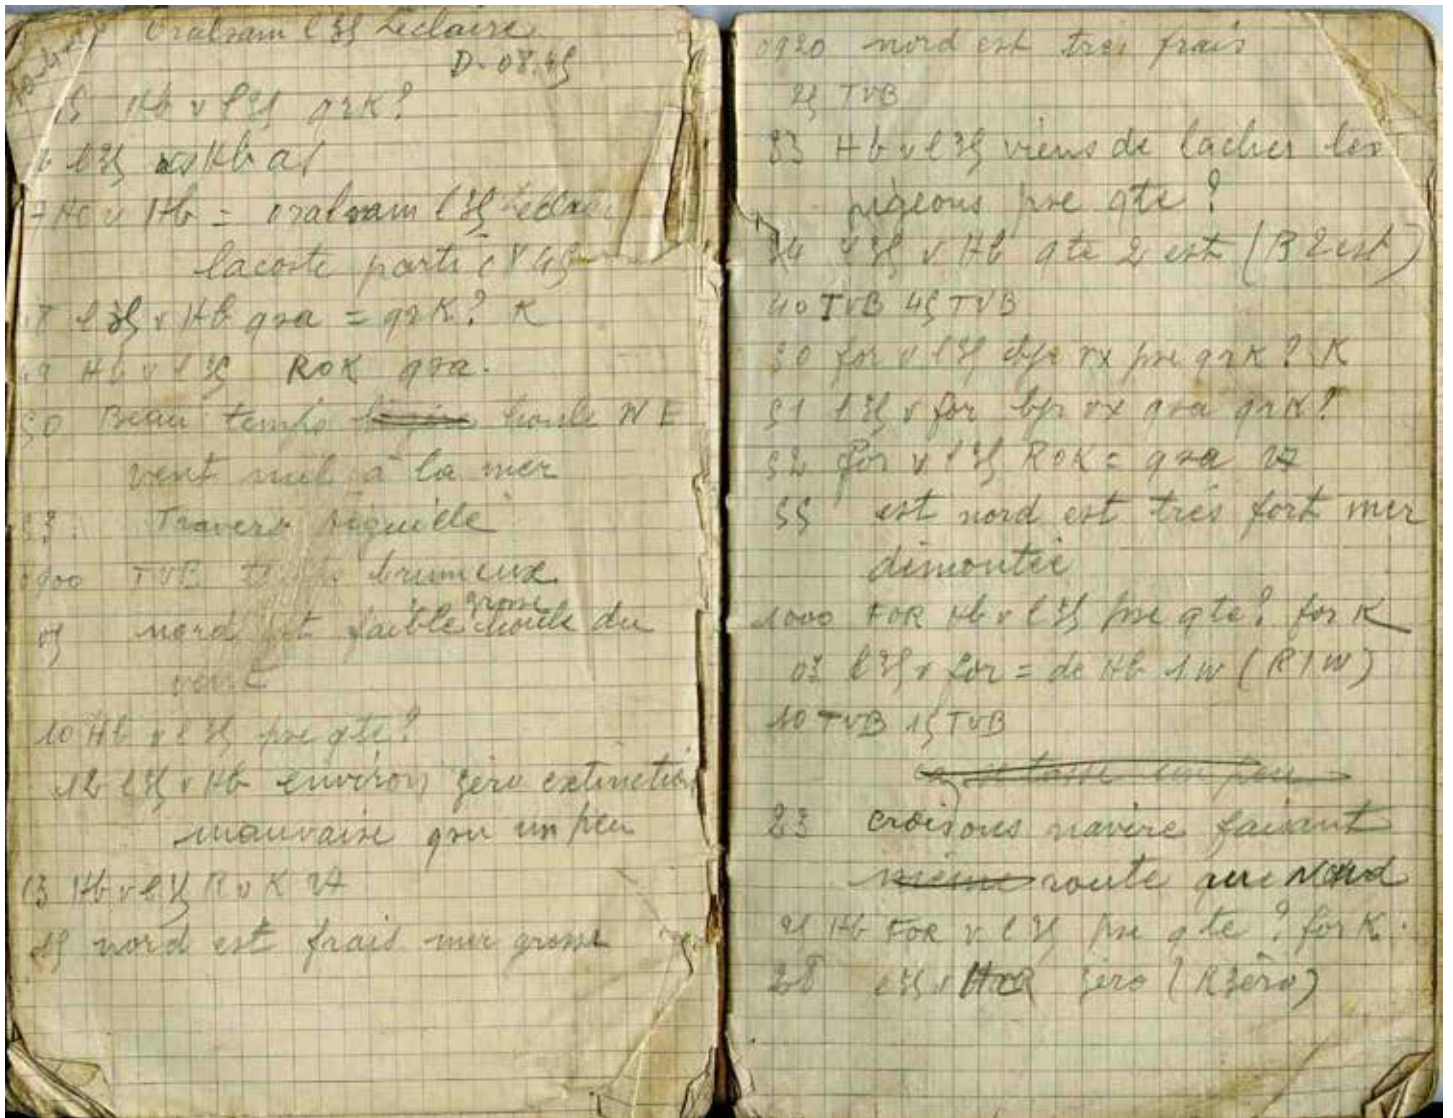 Oralsam l35 Leclaire
D. 08.45
15 Hb v l35 qrk?
l35 Hb as
Hc v Hb = oralsam l35 Leclaire
lacoste parti 845
l35 v Hb qsa = qrk? K
Hb v l35 ROK qsa.
50 Beau temps houle N E
vent nul à la mer
Travers Aiguille
0900 TVB temps brumeux
grosse
05 nord est faible houle du
vent
10 Hb v l35 pse qte?
12 l35 v Hb environ zéro extinction
mauvaise qsu un peu
13 Hb v l35 R v K VA
15 nord est frais mer grosse
0920 nord est très frais
25 TVB
33 Hb v l35 viens de lacher les
pigeons pse qte?
34 l35 v Hb qte 2 est (R 2 est)
40 TVB 45 TVB
50 for v l35 bjr vx pse qrk? K
51 l35 v for bjr vx qsa qrk?
52 for v l35 ROK = qsa VA
55 est nord est très fort mer
démontée
1000 FOR Hb v l35 pse qte? for K
03 l35 v for = de Hb 1W (R 1 W)
10 TVB 15 TVB
ça se tasse un peu
23 croisons navire faisant
même route au Nord
Hb FOR v l35 pse qte? for K.
28 l35 v zéro (R zéro)